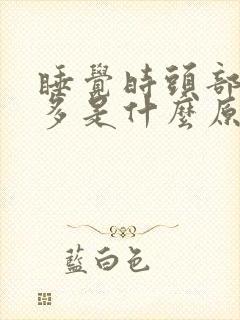 睡覺時頭部
多是什麼原
藍白色